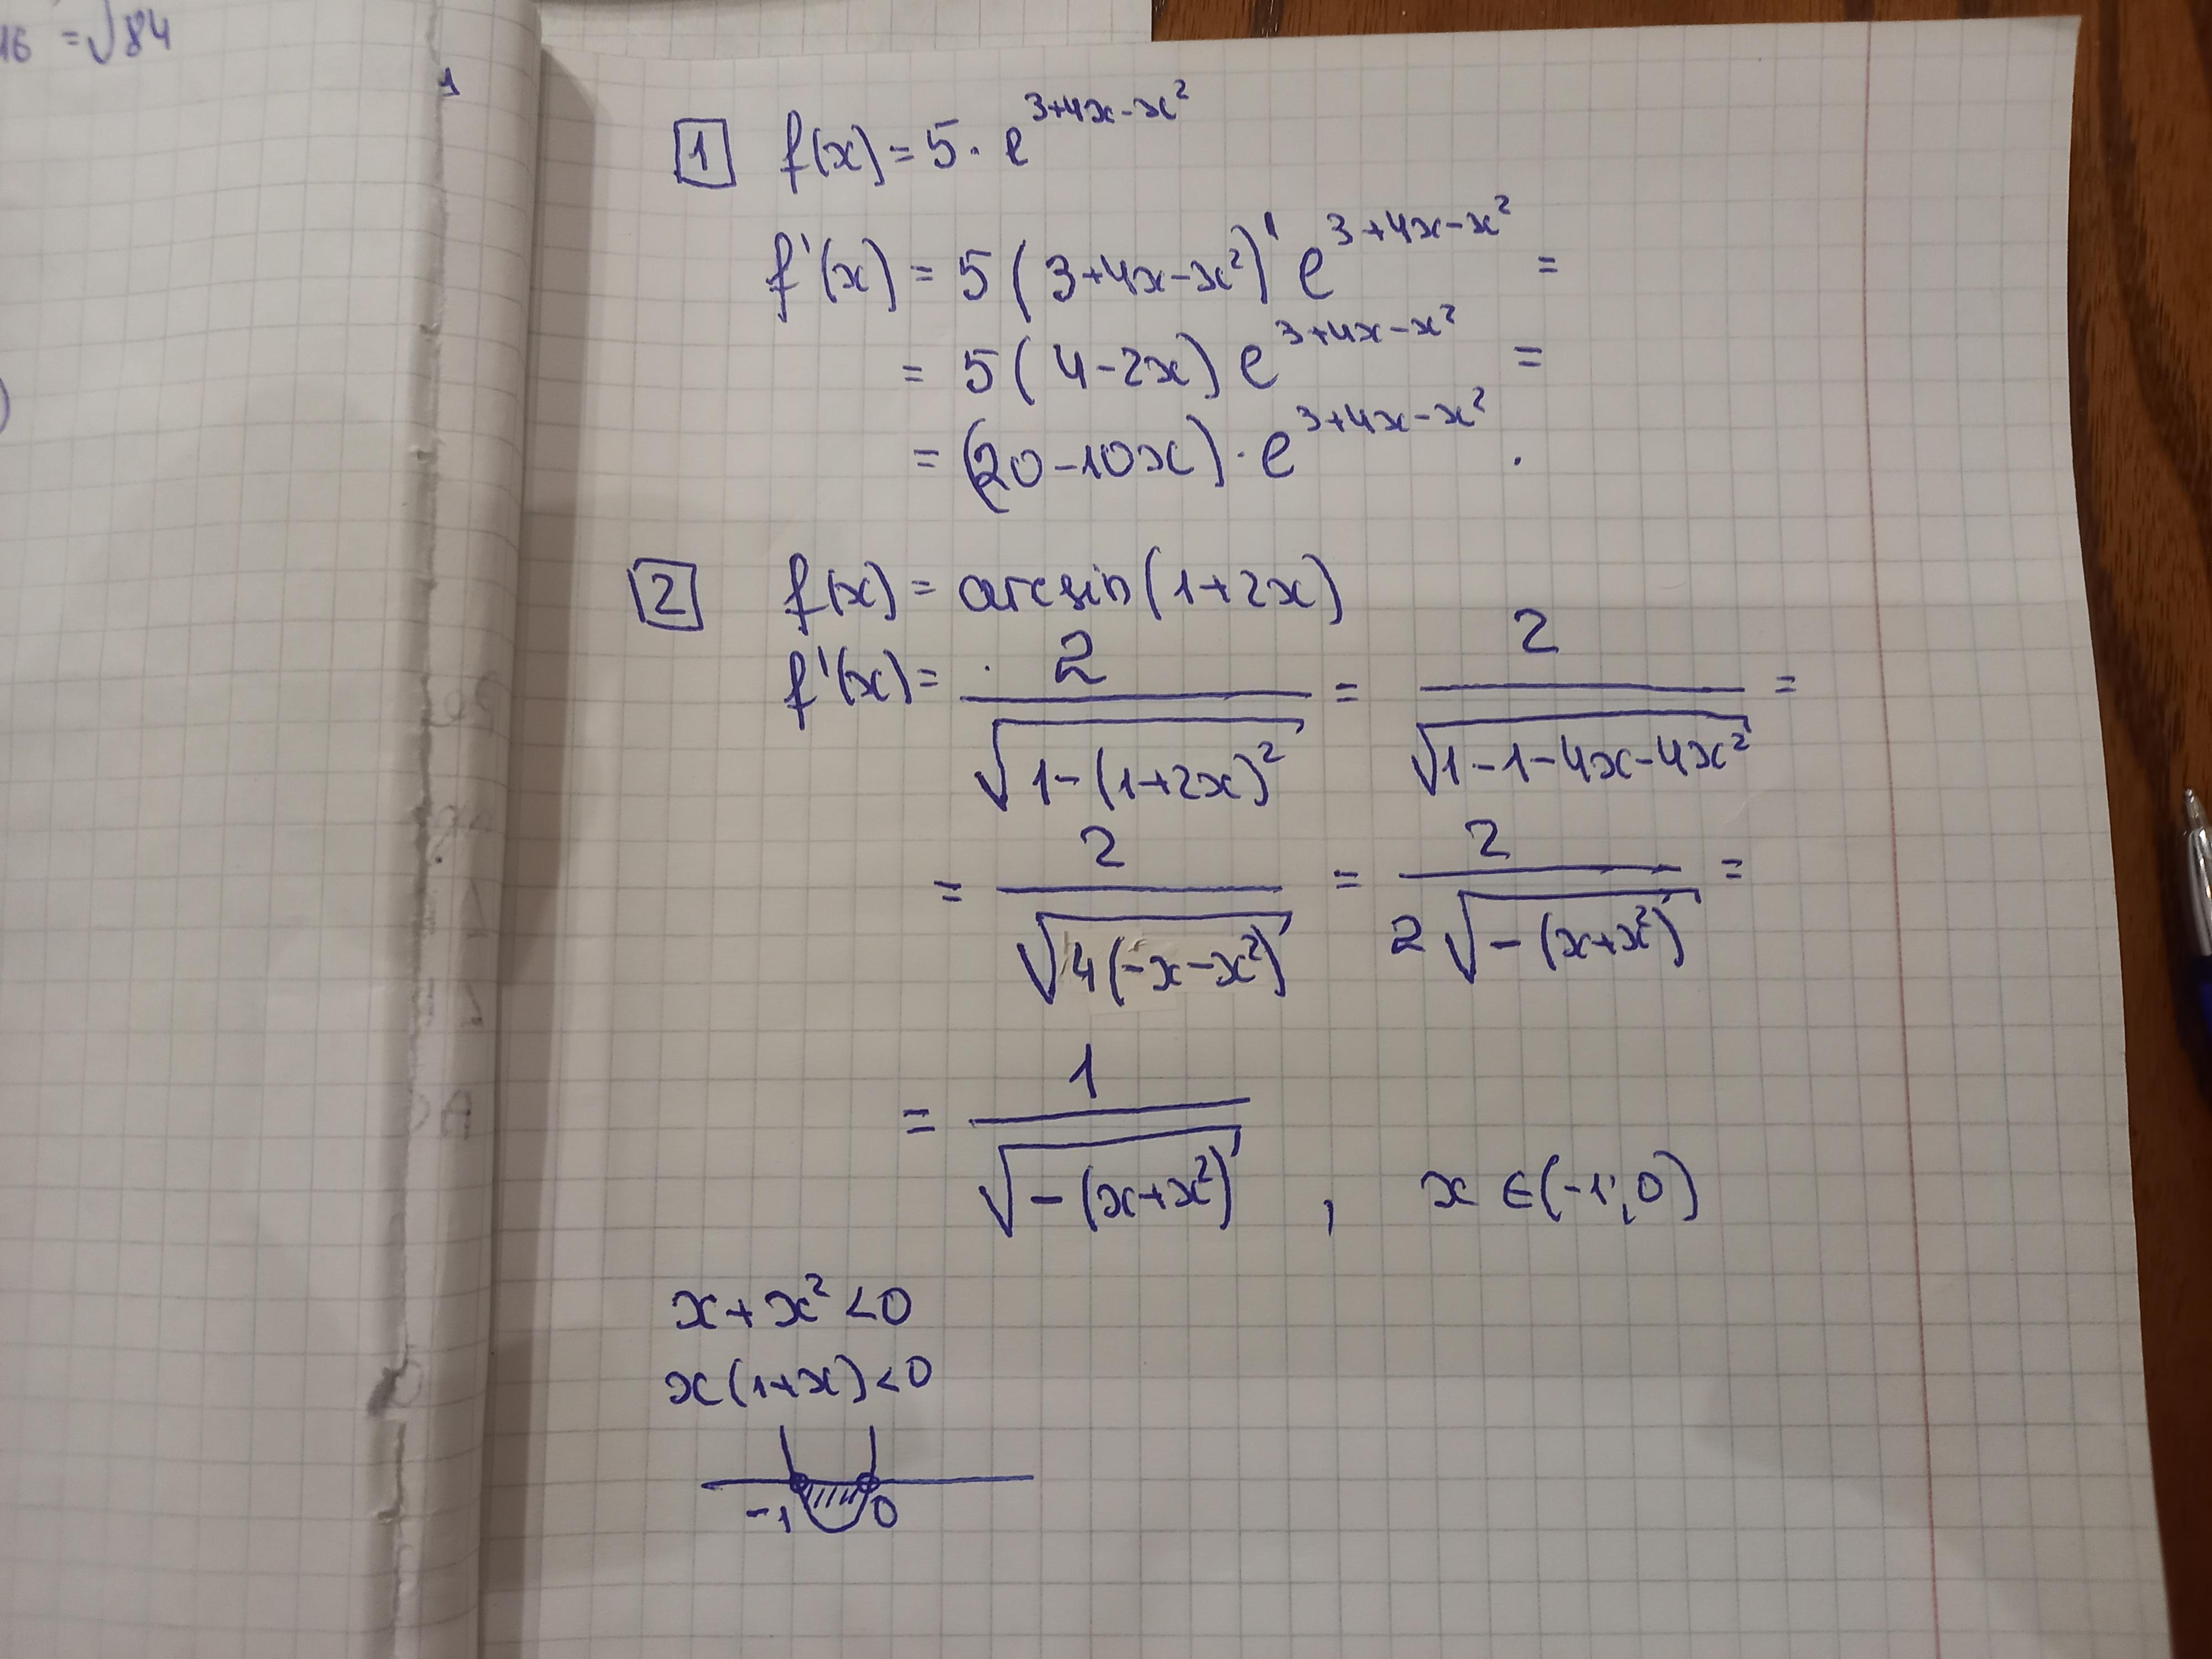 16 = √84
1
1 f(x) = 5 · e^{3+4x-x²}
f'(x) = 5 (3+4x-x²)' e^{3+4x-x²} =
= 5 (4-2x) e^{3+4x-x²} =
= (20-10x) · e^{3+4x-x²} .
2 f(x) = arcsin(1+2x)
f'(x) = 2 / √(1-(1+2x)²) = 2 / √(1-1-4x-4x²) =
= 2 / √(4(-x-x²)) = 2 / (2√(-(x+x²))) =
= 1 / √(-(x+x²)) , x ∈ (-1; 0)
x + x² < 0
x(1+x) < 0
-1 0